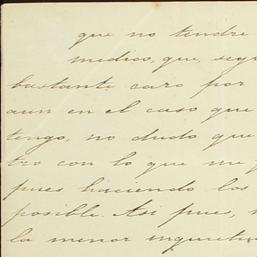 que no tendre
medico, que, segu
bastante caro por
aun en el caso que
tengo, no dudo que
tro con lo que me
pues haciendo los
posible. Asi pues,
la menor inquietu